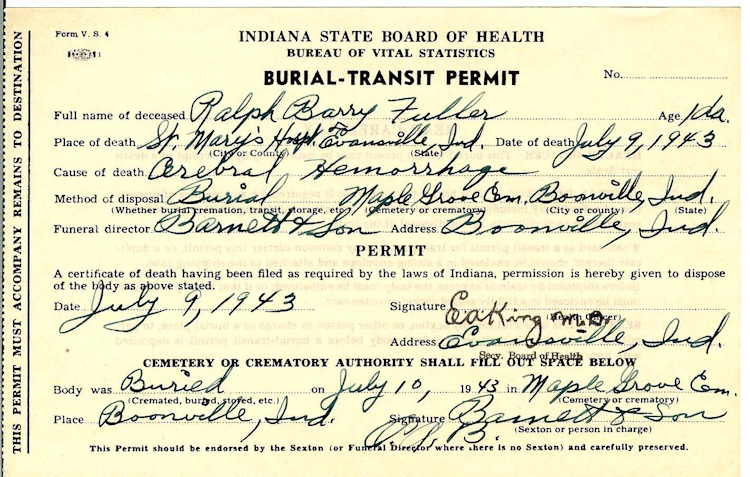 THIS PERMIT MUST ACCOMPANY REMAINS TO DESTINATION
Form V. S. 4
INDIANA STATE BOARD OF HEALTH
BUREAU OF VITAL STATISTICS
BURIAL-TRANSIT PERMIT
No.
Full name of deceased Ralph Barry Fuller Age 1 da.
Place of death St. Mary's Hosp. Evansville, Ind. Date of death July 9, 1943
(City or County) (State)
Cause of death Cerebral Hemorrhage
Method of disposal Burial Maple Grove Cem. Boonville, Ind.
(Whether burial, cremation, transit, storage, etc.) (Cemetery or crematory) (City or county) (State)
Funeral director Barnett & Son Address Boonville, Ind.
PERMIT
A certificate of death having been filed as required by the laws of Indiana, permission is hereby given to dispose
of the body as above stated.
Date July 9, 1943 Signature E a King M.D.
(Health Officer)
Address Evansville, Ind.
Secy. Board of Health
CEMETERY OR CREMATORY AUTHORITY SHALL FILL OUT SPACE BELOW
Body was Buried on July 10, 1943 in Maple Grove Cem.
(Cremated, buried, stored, etc.) (Cemetery or crematory)
Place Boonville, Ind. Signature Barnett & Son
(Sexton or person in charge)
This Permit should be endorsed by the Sexton (or Funeral Director where there is no Sexton) and carefully preserved.